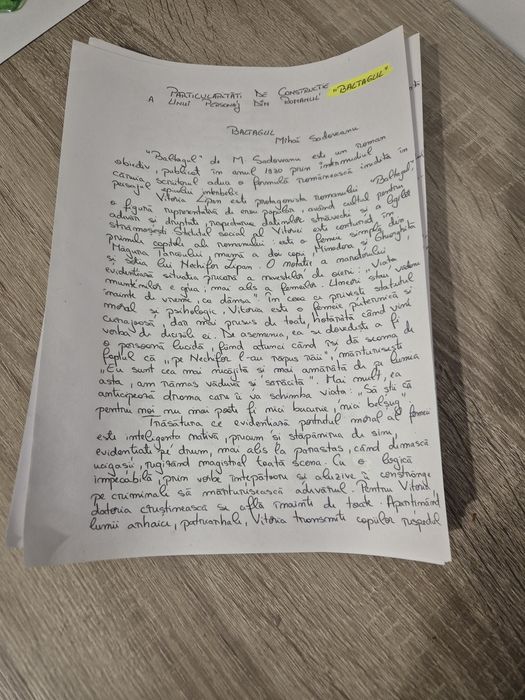 PARTICULARITĂȚI DE CONSTRUCȚIE
A UNUI PERSONAJ DIN ROMANUL "BALTAGUL"
BALTAGUL
Mihail Sadoveanu
"Baltagul" de M Sadoveanu este un roman
obiectiv, publicat în anul 1930 prin intermediul
căruia scriitorul aduce o formulă românească inedită în
peisajul epicului interbelic.
Vitoria Lipan este protagonista romanului "Baltagul"
o figură reprezentativă de erou popular, având cultul pentru
adevăr și dreptate, respectarea datinilor străvechi și a legilor
strămoșești. Statutul social al Vitoriei este conturat, în
primul capitol al romanului: este o femeie simplă din
Măgura Tarcăului, mamă a doi copii, Minodora și Gheorghiță
și soția lui Nechifor Lipan. O notație a naratorului
evidențiază situația precară a nevestelor de oieri: „Viața
muntenilor e grea; mai ales a femeilor. Uneori stau văduve
înainte de vreme, ca dânsa". În ceea ce privește statutul
moral și psihologic, Vitoria este o femeie puternică și
curajoasă, dar mai presus de toate, hotărâtă când vine
vorba de deciziile ei. De asemenea, ea se dovedește a fi
o persoană lucidă, fiind atunci când își dă seama de
faptul că „pe Nechifor l-au răpus răii", mărturisește
„Eu sunt cea mai necăjită și mai amărâtă de pe lumea
asta, am rămas văduvă și sărăcită". Mai mult, ea
anticipează drama care îi va schimba viața: „Să știi că
pentru noi nu mai poate fi nici bucurie, nici belșug".
Trăsătura ce evidențiază portretul moral al femeii
este inteligența nativă, precum și stăpânirea de sine,
evidențiate pe drum, mai ales la parastas, când demască
ucigașii, regizând magistral toată scena. Cu o logică
impecabilă, prin vorbe înțepătoare și aluzive îi constrânge
pe criminali să mărturisească adevărul. Pentru Vitoria,
datoria creștinească se află înainte de toate. Aparținând
lumii arhaice, patriarhale, Vitoria transmite copiilor respectul